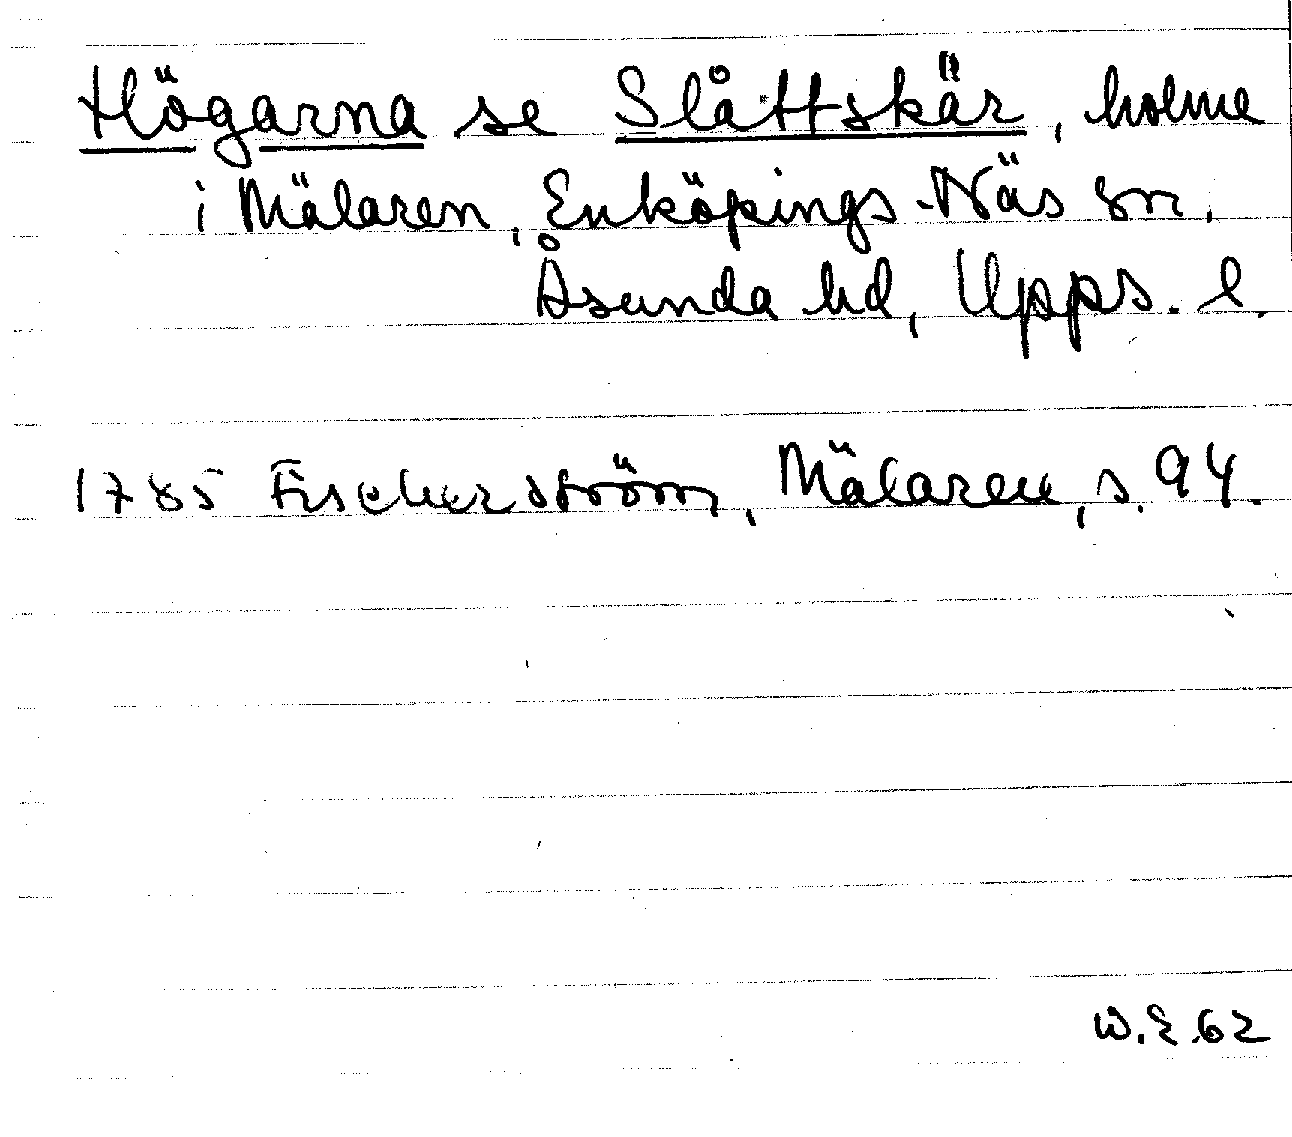 Högarna se Slåttskär, holme
i Mälaren, Enköpings-Näs sn.
Åsunda hd, Upps. l.
1785 Fischerström, Mälaren, s. 94.
W.E.62